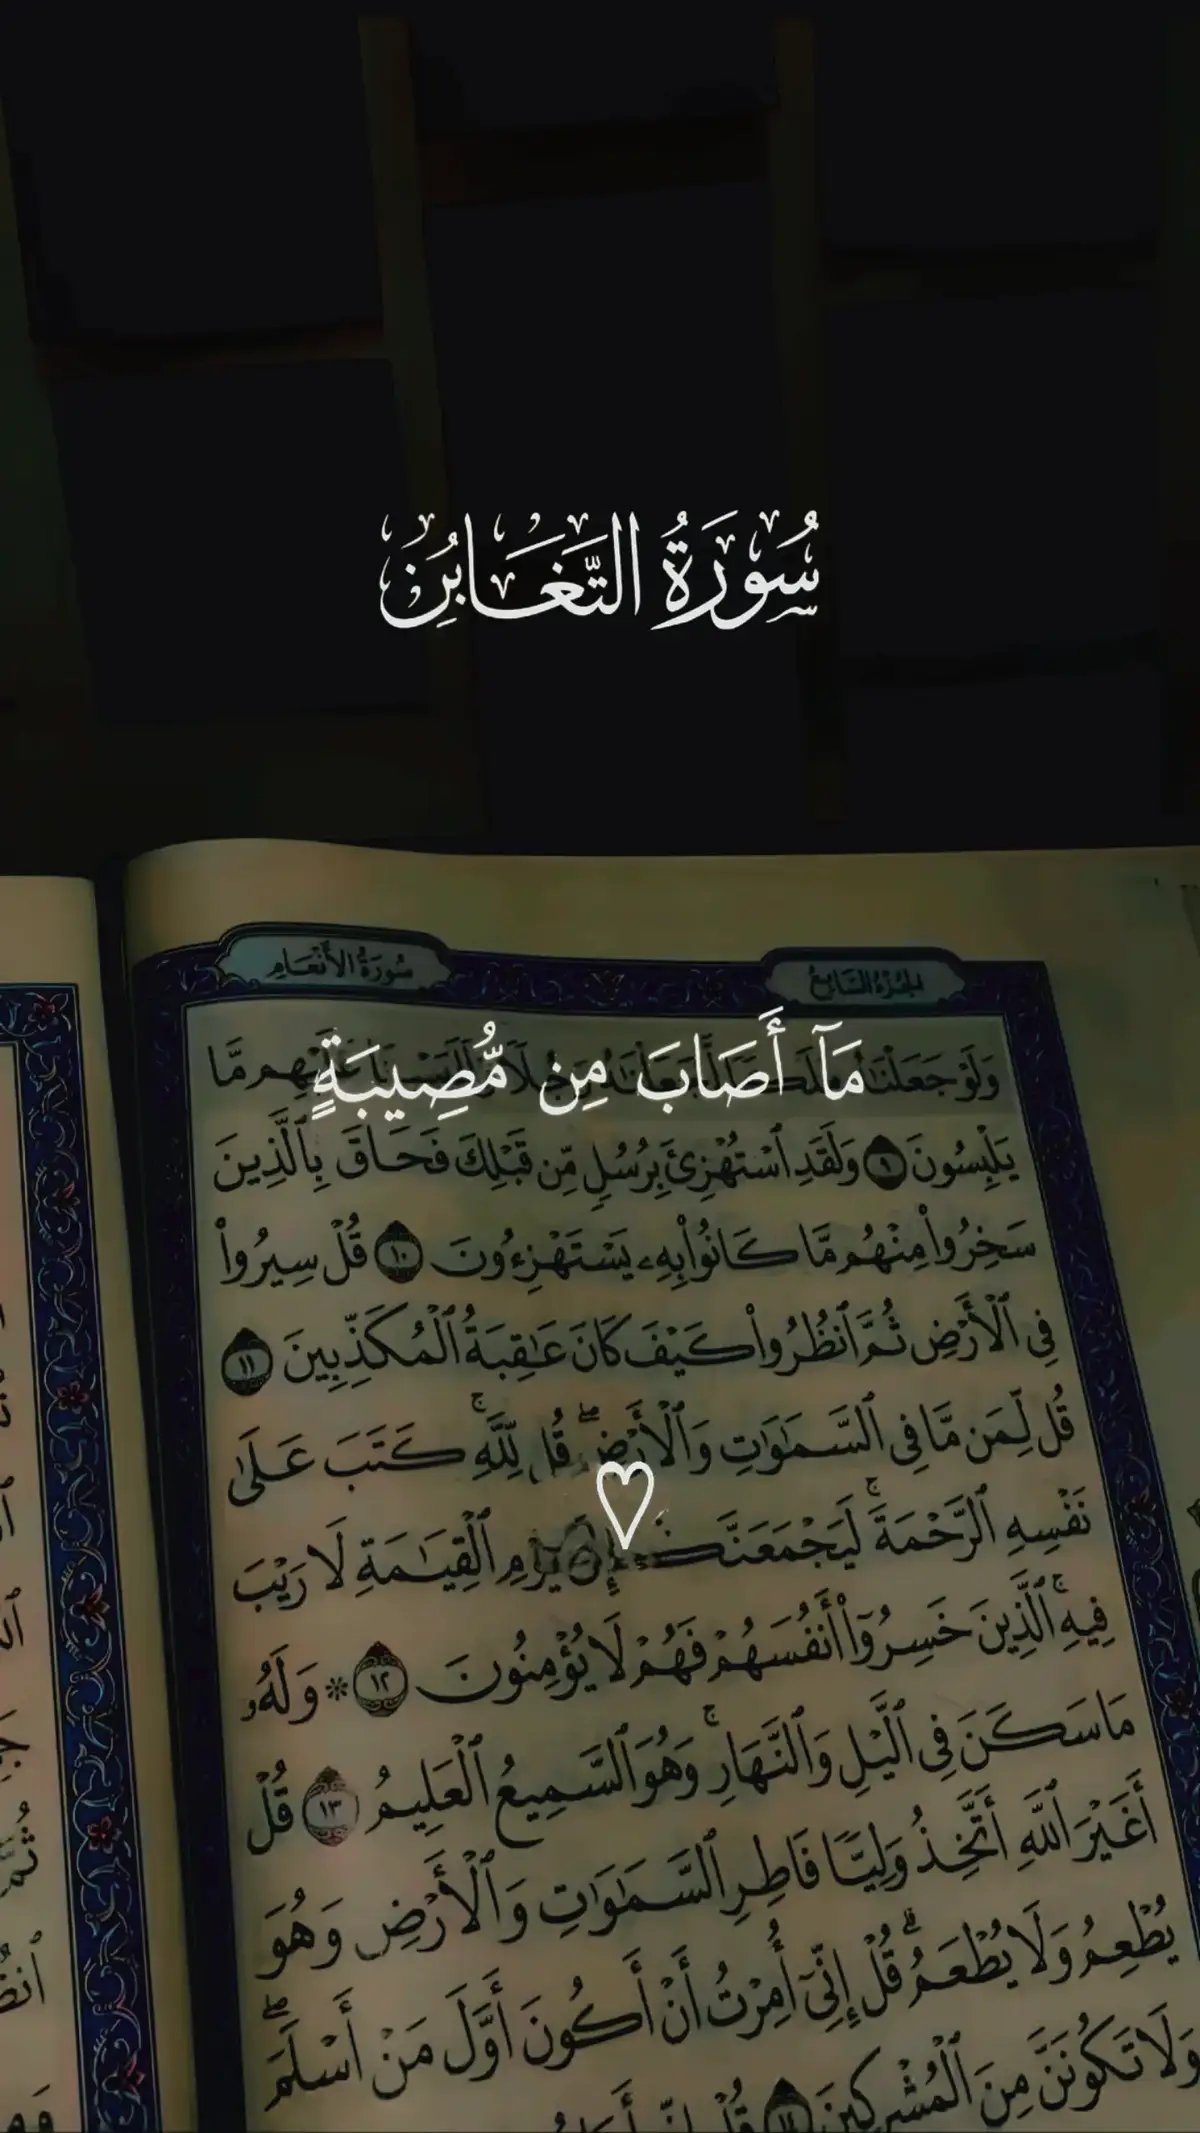 سُورَةُ التَّغَابُنِ
سُورَةُ الأَنْعَامِ
الجُزْءُ السَّابِعُ
مَآ أَصَابَ مِن مُّصِيبَةٍ
وَلَوْ جَعَلْنَٰهُ عَلَيْهِم مَّا
يَلْبِسُونَ ٩ وَلَقَدِ ٱسْتُهْزِئَ بِرُسُلٍ مِّن قَبْلِكَ فَحَاقَ بِٱلَّذِينَ
سَخِرُوا۟ مِنْهُم مَّا كَانُوا۟ بِهِۦ يَسْتَهْزِءُونَ ١٠ قُلْ سِيرُوا۟
فِى ٱلْأَرْضِ ثُمَّ ٱنظُرُوا۟ كَيْفَ كَانَ عَٰقِبَةُ ٱلْمُكَذِّبِينَ ١١
قُل لِّمَن مَّا فِى ٱلسَّمَٰوَٰتِ وَٱلْأَرْضِۖ قُل لِّلَّهِۚ كَتَبَ عَلَىٰ
♡
نَفْسِهِ ٱلرَّحْمَةَۚ لَيَجْمَعَنَّكُمْ إِلَىٰ يَوْمِ ٱلْقِيَٰمَةِ لَا رَيْبَ
فِيهِۚ ٱلَّذِينَ خَسِرُوٓا۟ أَنفُسَهُمْ فَهُمْ لَا يُؤْمِنُونَ ١٢ * وَلَهُۥ
مَا سَكَنَ فِى ٱلَّيْلِ وَٱلنَّهَارِۚ وَهُوَ ٱلسَّمِيعُ ٱلْعَلِيمُ ١٣ قُلْ
أَغَيْرَ ٱللَّهِ أَتَّخِذُ وَلِيًّا فَاطِرِ ٱلسَّمَٰوَٰتِ وَٱلْأَرْضِ وَهُوَ
يُطْعِمُ وَلَا يُطْعَمُۗ قُلْ إِنِّىٓ أُمِرْتُ أَنْ أَكُونَ أَوَّلَ مَنْ أَسْلَمَۖ
وَلَا تَكُونَنَّ مِنَ ٱلْمُشْرِكِينَ ١٤ قُلْ